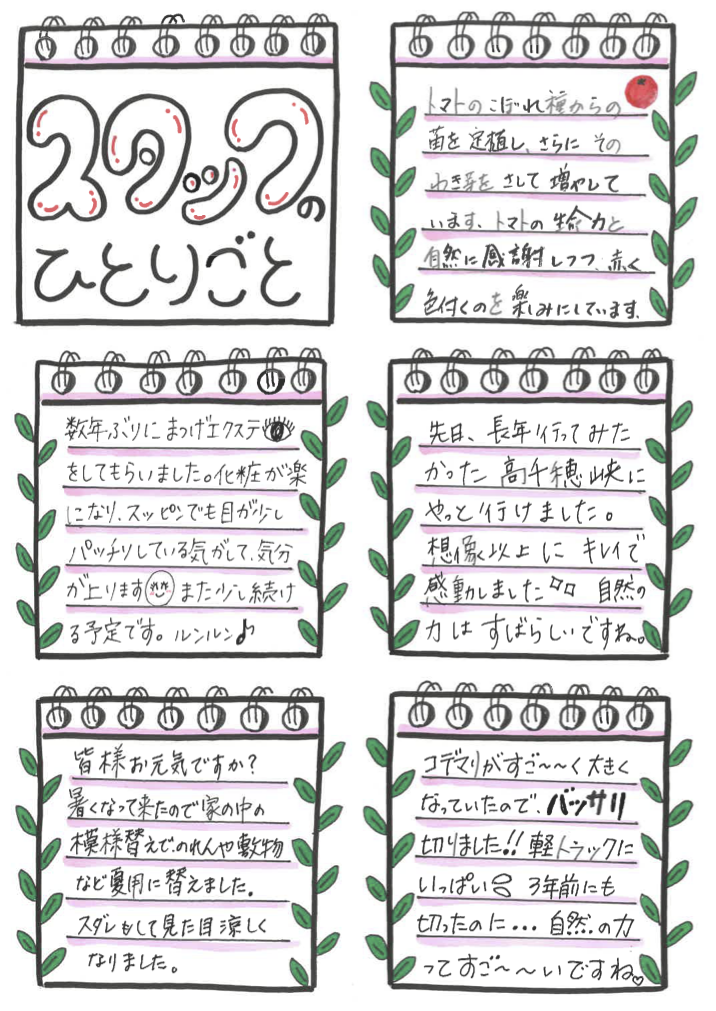 スタックの
ひとりごと
トマトのこぼれ種からの
苗を定植し、さらにその
わき芽をさして増やして
います。トマトの生命力と
自然に感謝しつつ、赤く
色付くのを楽しみにしています。
数年ぶりにまつげエクステ
をしてもらいました。化粧が楽
になり、スッピンでも目が少し
パッチリしている気がして、気分
が上ります また少し続け
る予定です。ルンルン♪
先日、長年行ってみた
かった高千穂峡に
やっと行けました。
想像以上にキレイで
感動しました 自然の
力はすばらしいですね。
皆様お元気ですか?
暑くなって来たので家の中の
模様替えで、のれんや敷物
など夏用に替えました。
スダレもして見た目涼しく
なりました。
コデマリがすご〜〜く大きく
なっていたので、バッサリ
切りました!!軽トラックに
いっぱい 3年前にも
切ったのに…自然の力
ってすご〜〜いですね♡